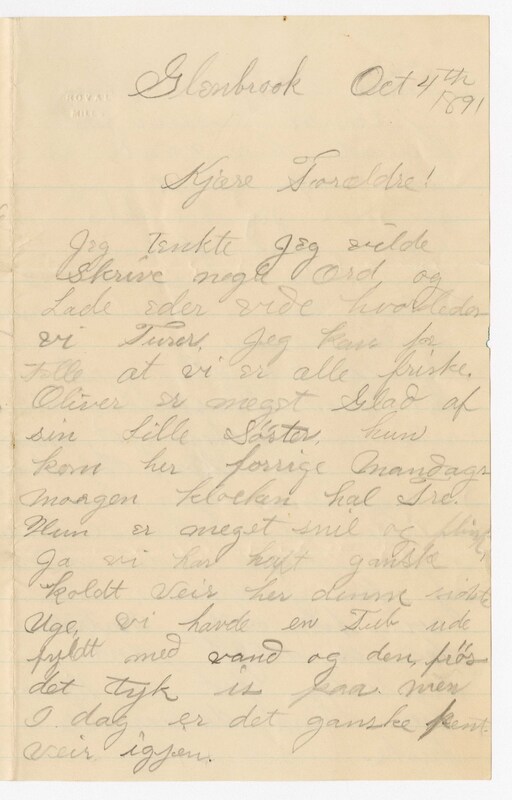 ROYAL
MILLS
Glenbrook Oct 4th
1891
Kjære Foreldre!
Jeg tenkte Jeg vilde
Skrive nogle Ord og
Lade eder vide hvorledes
vi Turer, Jeg kan for
telle at vi er alle friske.
Oliver er meget Glad af
sin Lille Søster, hun
kom her forrige Mandags
morgen klocken hal Tre.
Hun er meget snil og
Ja vi har haft ganske
koldt Veir her denne sidste
Uge, vi havde en Tub ude
fyldt med vand og den frøs
det tyk is paa. men
I dag er det ganske pent
Veir igjen.